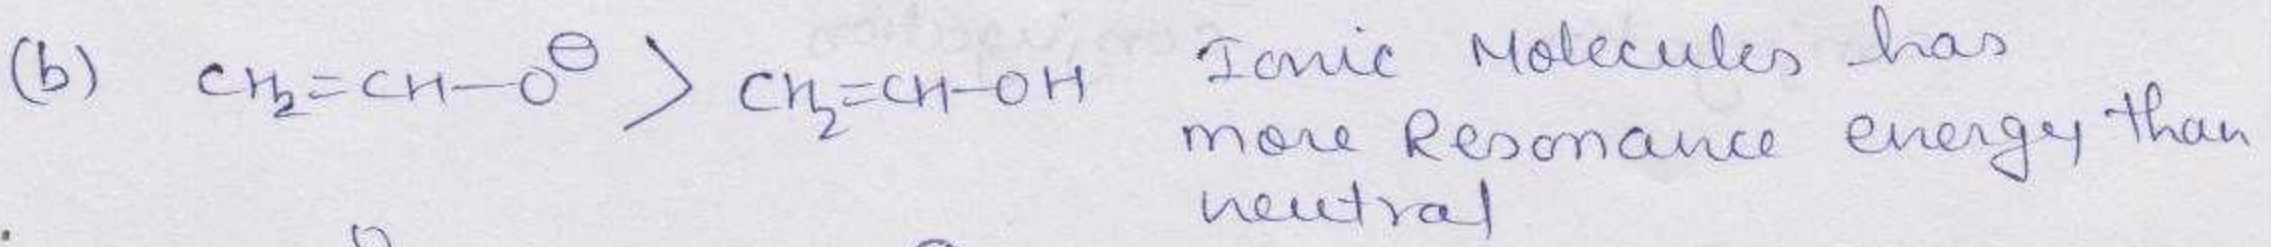 (b) CH₂=CH—O⊖ > CH₂=CH—OH Ionic Molecules has
more Resonance energy than
neutral